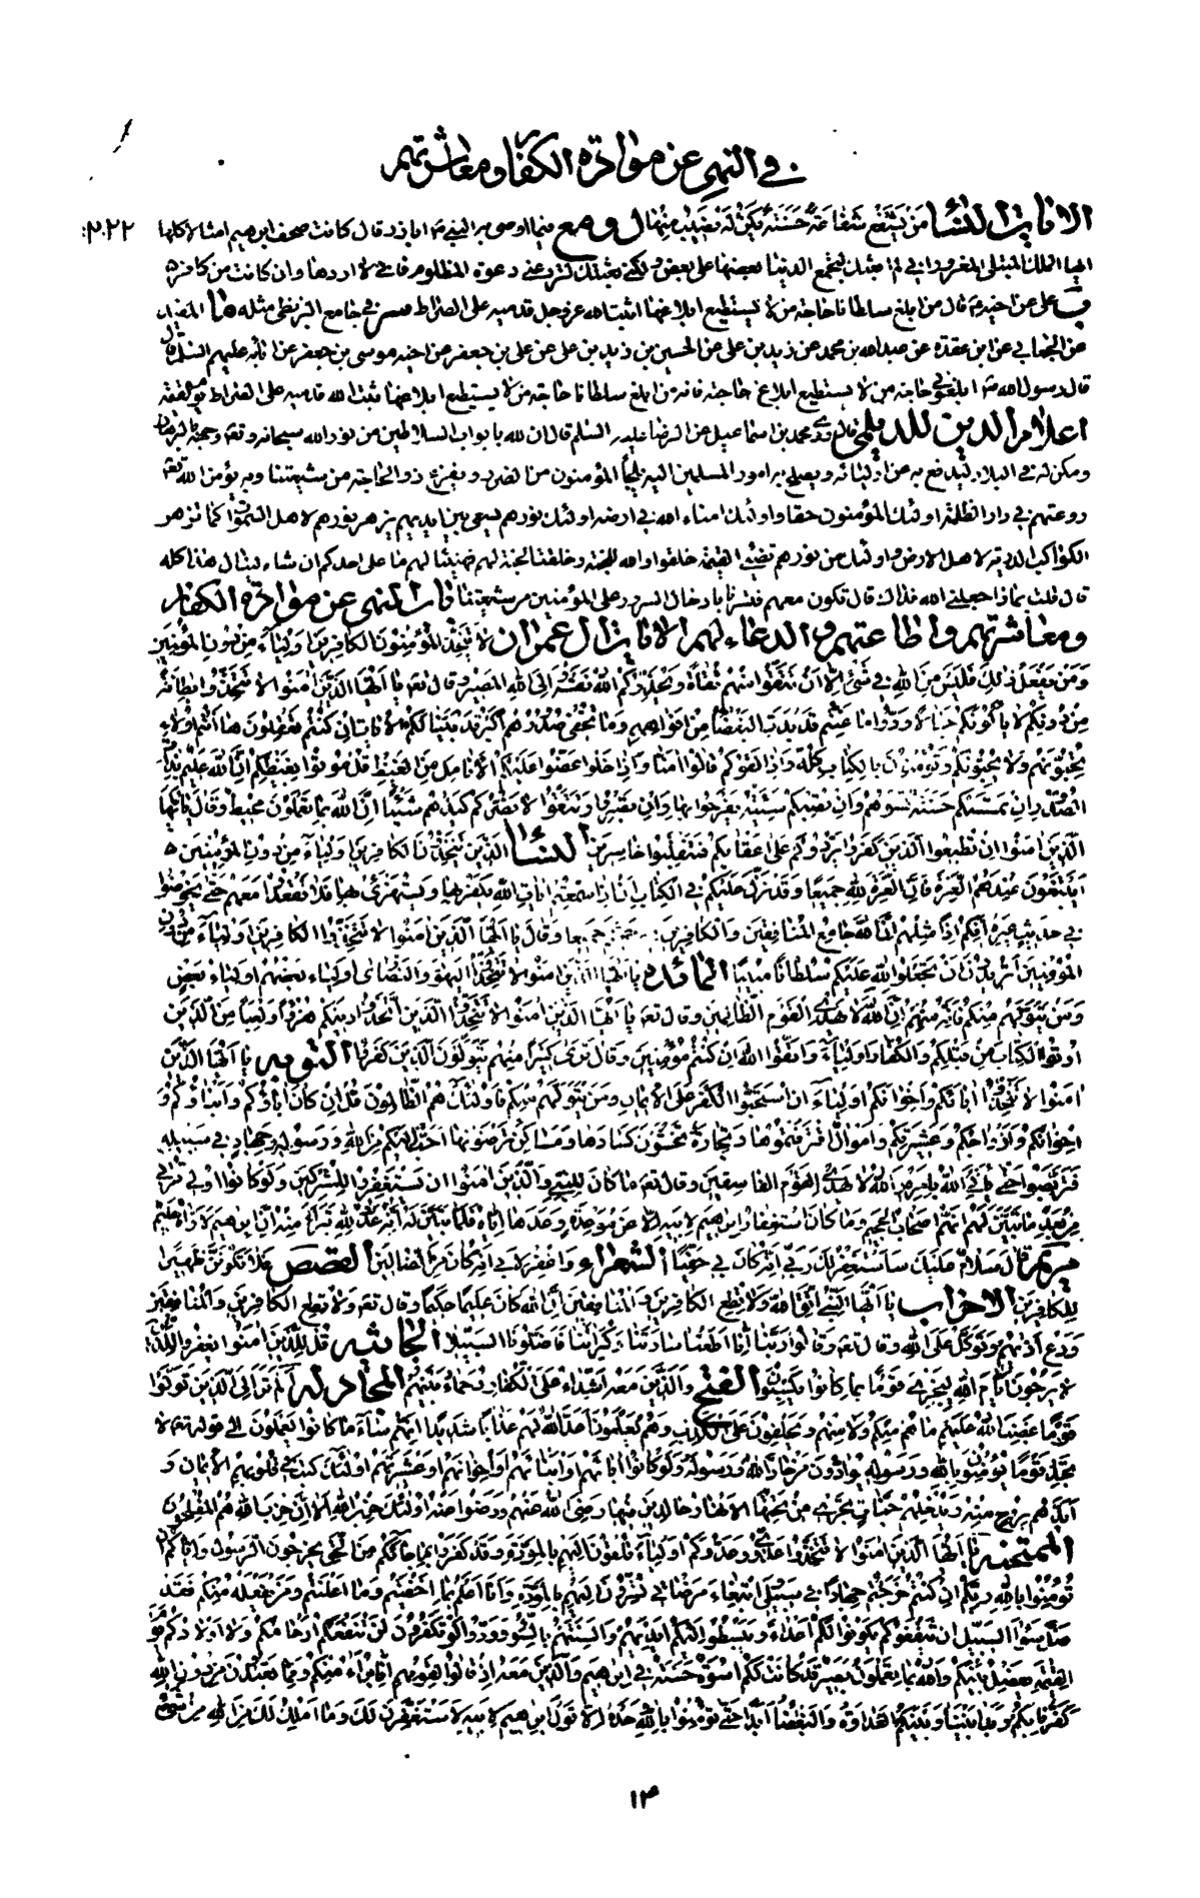 في النهى عن موادة الكفار ومعاشرتهم
الآيات النساء مَنْ يَشْفَعْ شَفاعَةً حَسَنَةً يَكُنْ لَهُ نَصِيبٌ مِنْها ل ومع فيما اوصى به النبي ص اباذر قال كانت صحف ابرهيم امثالا كلها
ايها الملك المبتلى المغرور اني لم ابعثك لتجمع الدنيا بعضها على بعض ولكني بعثتك لترد عني دعوة المظلوم فاني لا اردها وان كانت من كافر
ب على عن اخيه ع قال من ابلغ سلطانا حاجة من لا يستطيع ابلاغها اثبت الله عز وجل قدميه على الصراط في جامع البزنطى مثله ما المفيد
عن الجعابي عن ابن عقدة عن عبد الله بن محمد عن زيد بن على عن الحسين بن زيد بن على عن على بن جعفر عن اخيه موسى بن جعفر عن آبائه عليهم السلام قال
قال رسول الله ص ابلغوني حاجة من لا يستطيع ابلاغ حاجته فانه من ابلغ سلطانا حاجة من لا يستطيع ابلاغها ثبت الله قدميه على الصراط يوم القيمة
اعلام الدين للديلمي قال روى محمد بن اسماعيل عن الرضا عليه السلم قال ان لله بابواب السلاطين من نور الله سبحانه وجهه بالبرهان
ومكن له في البلاد ليدفع به عن اوليائه ويصلح به امور المسلمين اليه يلجأ المؤمنون من الضرر ويفزع ذو الحاجة من شيعتنا وبه يؤمن الله تعم
روعتهم في دار الظلمة اولئك المؤمنون حقا واولئك امناء الله في ارضه اولئك نورهم يسعى بين ايديهم يزهر نورهم لاهل السموات كما تزهر
الكواكب الدرية لاهل الارض واولئك من نورهم تضيء القيمة خلقوا والله للجنة وخلقت الجنة لهم فهنيئا لهم ما على احدكم ان شاء لينال هذا كله
قال قلت بماذا جعلني الله فداك قال تكون معهم فتسرنا بادخال السرور على المؤمنين من شيعتنا باب النهى عن موادة الكفار
ومعاشرتهم واطاعتهم والدعاء لهم الآيات آل عمران لا يَتَّخِذِ الْمُؤْمِنُونَ الكافِرينَ اَوْلِياءَ مِنْ دُونِ الْمُؤْمِنينَ
وَمَنْ يَفْعَلْ ذلِكَ فَلَيْسَ مِنَ اللهِ في شَيْءٍ اِلّا اَنْ تَتَّقُوا مِنْهُمْ تُقاةً وَيُحَذِّرُكُمُ اللهُ نَفْسَهُ وَاِلَى اللهِ الْمَصيرُ وقال تعم يا اَيُّهَا الَّذينَ امَنُوا لا تَتَّخِذُوا بِطانَةً
مِنْ دُونِكُمْ لا يَأْلُونَكُمْ خَبالاً وَدُّوا ما عَنِتُّمْ قَدْ بَدَتِ الْبَغْضاءُ مِنْ اَفْواهِهِمْ وَما تُخْفي صُدُورُهُمْ اَكْبَرُ قَدْ بَيَّنّا لَكُمُ الْآياتِ اِنْ كُنْتُمْ تَعْقِلُونَ ها اَنْتُمْ اُولاءِ
تُحِبُّونَهُمْ وَلا يُحِبُّونَكُمْ وَتُؤْمِنُونَ بِالْكِتابِ كُلِّهِ وَاِذا لَقُوكُمْ قالُوا امَنّا وَاِذا خَلَوْا عَضُّوا عَلَيْكُمُ الْاَنامِلَ مِنَ الْغَيْظِ قُلْ مُوتُوا بِغَيْظِكُمْ اِنَّ اللهَ عَليمٌ بِذاتِ
الصُّدُورِ اِنْ تَمْسَسْكُمْ حَسَنَةٌ تَسُؤْهُمْ وَاِنْ تُصِبْكُمْ سَيِّئَةٌ يَفْرَحُوا بِها وَاِنْ تَصْبِرُوا وَتَتَّقُوا لا يَضُرُّكُمْ كَيْدُهُمْ شَيْئًا اِنَّ اللهَ بِما يَعْمَلُونَ مُحيطٌ وقال يا اَيُّهَا
الَّذينَ امَنُوا اِنْ تُطيعُوا الَّذينَ كَفَرُوا يَرُدُّوكُمْ عَلى اَعْقابِكُمْ فَتَنْقَلِبُوا خاسِرينَ النساء اَلَّذينَ يَتَّخِذُونَ الْكافِرينَ اَوْلِياءَ مِنْ دُونِ الْمُؤْمِنينَ
اَيَبْتَغُونَ عِنْدَهُمُ الْعِزَّةَ فَاِنَّ الْعِزَّةَ لِلّهِ جَميعًا وَقَدْ نَزَّلَ عَلَيْكُمْ فِي الْكِتابِ اَنْ اِذا سَمِعْتُمْ اياتِ اللهِ يُكْفَرُ بِها وَيُسْتَهْزَأُ بِها فَلا تَقْعُدُوا مَعَهُمْ حَتّى يَخُوضُوا
في حَديثٍ غَيْرِهِ اِنَّكُمْ اِذًا مِثْلُهُمْ اِنَّ اللهَ جامِعُ الْمُنافِقينَ وَالْكافِرينَ في جَهَنَّمَ جَميعا وقال يا اَيُّهَا الَّذينَ امَنُوا لا تَتَّخِذُوا الْكافِرينَ اَوْلِياءَ مِنْ دُونِ
الْمُؤْمِنينَ اَتُريدُونَ اَنْ تَجْعَلُوا لِلّهِ عَلَيْكُمْ سُلْطانًا مُبينًا المائدة يا اَيُّهَا الَّذينَ امَنُوا لا تَتَّخِذُوا الْيَهُودَ وَالنَّصارى اَوْلِياءَ بَعْضُهُمْ اَوْلِياءُ بَعْضٍ
وَمَنْ يَتَوَلَّهُمْ مِنْكُمْ فَاِنَّهُ مِنْهُمْ اِنَّ اللهَ لا يَهْدِي الْقَوْمَ الظّالِمينَ وقال تعم يا اَيُّهَا الَّذينَ امَنُوا لا تَتَّخِذُوا الَّذينَ اتَّخَذُوا دينَكُمْ هُزُوًا وَلَعِبًا مِنَ الَّذينَ
اُوتُوا الْكِتابَ مِنْ قَبْلِكُمْ وَالْكُفّارَ اَوْلِياءَ وَاتَّقُوا اللهَ اِنْ كُنْتُمْ مُؤْمِنينَ وقال تَرى كَثيرًا مِنْهُمْ يَتَوَلَّوْنَ الَّذينَ كَفَرُوا التوبه يا اَيُّهَا الَّذينَ
امَنُوا لا تَتَّخِذُوا اباءَكُمْ وَاِخْوانَكُمْ اَوْلِياءَ اِنِ اسْتَحَبُّوا الْكُفْرَ عَلَى الْايمانِ وَمَنْ يَتَوَلَّهُمْ مِنْكُمْ فَاُولئِكَ هُمُ الظّالِمُونَ قُلْ اِنْ كانَ اباؤُكُمْ وَاَبْناؤُكُمْ وَ
اِخْوانُكُمْ وَاَزْواجُكُمْ وَعَشيرَتُكُمْ وَاَمْوالٌ اقْتَرَفْتُمُوها وَتِجارَةٌ تَخْشَوْنَ كَسادَها وَمَساكِنُ تَرْضَوْنَها اَحَبَّ اِلَيْكُمْ مِنَ اللهِ وَرَسُولِهِ وَجِهادٍ في سَبيلِهِ
فَتَرَبَّصُوا حَتّى يَأْتِيَ اللهُ بِاَمْرِهِ وَاللهُ لا يَهْدِي الْقَوْمَ الْفاسِقينَ وقال تعم ما كانَ لِلنَّبِيِّ وَالَّذينَ امَنُوا اَنْ يَسْتَغْفِرُوا لِلْمُشْرِكينَ وَلَوْ كانُوا اُولي قُرْبى
مِنْ بَعْدِ ما تَبَيَّنَ لَهُمْ اَنَّهُمْ اَصْحابُ الْجَحيمِ وَما كانَ اسْتِغْفارُ اِبْراهيمَ لِاَبيهِ اِلّا عَنْ مَوْعِدَةٍ وَعَدَها اِيّاهُ فَلَمّا تَبَيَّنَ لَهُ اَنَّهُ عَدُوٌّ لِلّهِ تَبَرَّأَ مِنْهُ اِنَّ اِبْراهيمَ لَاَوّاهٌ حَليمٌ
مريم قالَ سَلامٌ عَلَيْكَ سَاَسْتَغْفِرُ لَكَ رَبّي اِنَّهُ كانَ بي حَفِيًّا الشعراء وَاغْفِرْ لِاَبي اِنَّهُ كانَ مِنَ الضّالّينَ القصص فَلا تَكُونَنَّ ظَهيرًا
لِلْكافِرينَ الاحزاب يا اَيُّهَا النَّبِيُّ اتَّقِ اللهَ وَلا تُطِعِ الْكافِرينَ وَالْمُنافِقينَ اِنَّ اللهَ كانَ عَليمًا حَكيمًا وقال تعم وَلا تُطِعِ الْكافِرينَ وَالْمُنافِقينَ
وَدَعْ اَذاهُمْ وَتَوَكَّلْ عَلَى اللهِ وقال تعم وَقالُوا رَبَّنا اِنّا اَطَعْنا سادَتَنا وَكُبَراءَنا فَاَضَلُّونَا السَّبيلا الجاثيه قُلْ لِلَّذينَ امَنُوا يَغْفِرُوا لِلَّذينَ
لا يَرْجُونَ اَيّامَ اللهِ لِيَجْزِيَ قَوْمًا بِما كانُوا يَكْسِبُونَ الفتح وَالَّذينَ مَعَهُ اَشِدّاءُ عَلَى الْكُفّارِ رُحَماءُ بَيْنَهُمْ المجادلة اَلَمْ تَرَ اِلَى الَّذينَ تَوَلَّوْا
قَوْمًا غَضِبَ اللهُ عَلَيْهِمْ ما هُمْ مِنْكُمْ وَلا مِنْهُمْ وَيَحْلِفُونَ عَلَى الْكَذِبِ وَهُمْ يَعْلَمُونَ اَعَدَّ اللهُ لَهُمْ عَذابًا شَديدًا اِنَّهُمْ ساءَ ما كانُوا يَعْمَلُونَ الى قوله تعم لا
تَجِدُ قَوْمًا يُؤْمِنُونَ بِاللهِ وَرَسُولِهِ يُوادُّونَ مَنْ حادَّ اللهَ وَرَسُولَهُ وَلَوْ كانُوا اباءَهُمْ اَوْ اَبْناءَهُمْ اَوْ اِخْوانَهُمْ اَوْ عَشيرَتَهُمْ اُولئِكَ كَتَبَ في قُلُوبِهِمُ الْايمانَ وَ
اَيَّدَهُمْ بِرُوحٍ مِنْهُ وَيُدْخِلُهُمْ جَنّاتٍ تَجْري مِنْ تَحْتِهَا الْاَنْهارُ خالِدينَ فيها رَضِيَ اللهُ عَنْهُمْ وَرَضُوا عَنْهُ اُولئِكَ حِزْبُ اللهِ اَلا اِنَّ حِزْبَ اللهِ هُمُ الْمُفْلِحُونَ
الممتحنه يا اَيُّهَا الَّذينَ امَنُوا لا تَتَّخِذُوا عَدُوّي وَعَدُوَّكُمْ اَوْلِياءَ تُلْقُونَ اِلَيْهِمْ بِالْمَوَدَّةِ وَقَدْ كَفَرُوا بِما جاءَكُمْ مِنَ الْحَقِّ يُخْرِجُونَ الرَّسُولَ وَاِيّاكُمْ اَنْ
تُؤْمِنُوا بِاللهِ رَبِّكُمْ اِنْ كُنْتُمْ خَرَجْتُمْ جِهادًا في سَبيلي وَابْتِغاءَ مَرْضاتي تُسِرُّونَ اِلَيْهِمْ بِالْمَوَدَّةِ وَاَنَا اَعْلَمُ بِما اَخْفَيْتُمْ وَما اَعْلَنْتُمْ وَمَنْ يَفْعَلْهُ مِنْكُمْ فَقَدْ
ضَلَّ سَواءَ السَّبيلِ اِنْ يَثْقَفُوكُمْ يَكُونُوا لَكُمْ اَعْداءً وَيَبْسُطُوا اِلَيْكُمْ اَيْدِيَهُمْ وَاَلْسِنَتَهُمْ بِالسُّوءِ وَوَدُّوا لَوْ تَكْفُرُونَ لَنْ تَنْفَعَكُمْ اَرْحامُكُمْ وَلا اَوْلادُكُمْ يَوْمَ
الْقِيمَةِ يَفْصِلُ بَيْنَكُمْ وَاللهُ بِما تَعْمَلُونَ بَصيرٌ قَدْ كانَتْ لَكُمْ اُسْوَةٌ حَسَنَةٌ في اِبْراهيمَ وَالَّذينَ مَعَهُ اِذْ قالُوا لِقَوْمِهِمْ اِنّا بُرَءآءُ مِنْكُمْ وَمِمّا تَعْبُدُونَ مِنْ دُونِ اللهِ
كَفَرْنا بِكُمْ وَبَدا بَيْنَنا وَبَيْنَكُمُ الْعَداوَةُ وَالْبَغْضاءُ اَبَدًا حَتّى تُؤْمِنُوا بِاللهِ وَحْدَهُ اِلّا قَوْلَ اِبْراهيمَ لِاَبيهِ لَاَسْتَغْفِرَنَّ لَكَ وَما اَمْلِكُ لَكَ مِنَ اللهِ مِنْ شَيْءٍ
١٣